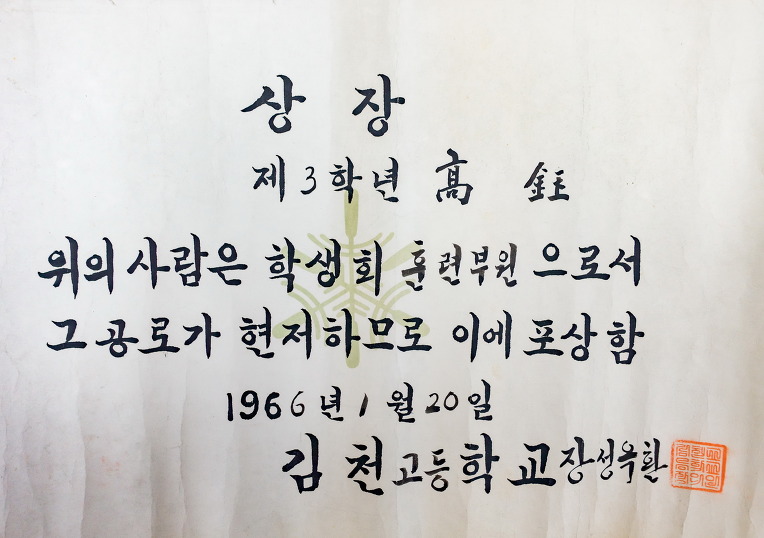 상장
제3학년 高 鉒
위의 사람은 학생회 훈련부원 으로서
그 공로가 현저하므로 이에 포상함
1966년 1월 20일
김천고등학교장 성옥환